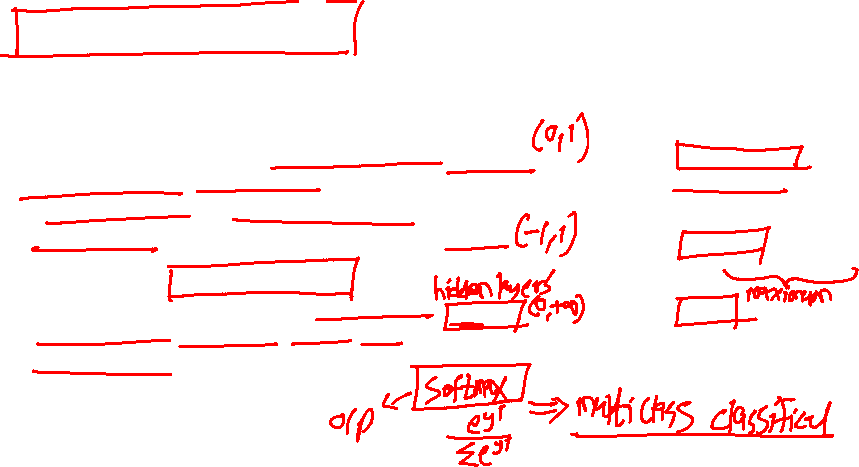 (0,1)
(-1,1)
hidden layers
(0,+∞)
maximum
Softmax
o/p
e^yi
Σe^yi
⇒ multiclass classifical